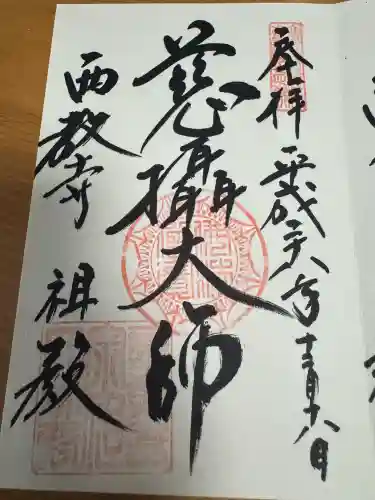 奉拝 平成二六年十二月十八日
慈攝大師
西教寺 祖殿